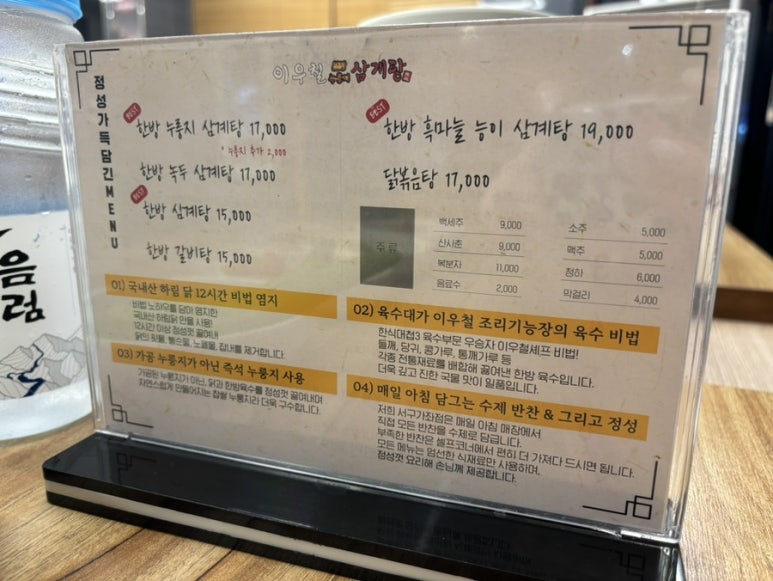 이우철 한방 삼계탕
정성가득담긴MENU
BEST
한방 누룽지 삼계탕 17,000
* 누룽지 추가 2,000
한방 녹두 삼계탕 17,000
BEST
한방 삼계탕 15,000
한방 갈비탕 15,000
BEST
한방 흑마늘 능이 삼계탕 19,000
닭볶음탕 17,000
주류
백세주 9,000
산사춘 9,000
복분자 11,000
음료수 2,000
소주 5,000
맥주 5,000
청하 6,000
막걸리 4,000
01) 국내산 하림 닭 12시간 비법 염지
비법 노하우를 담아 염지한
국내산 하림닭 만을 사용!
12시간 이상 정성껏 끓여내
닭의 핏물, 불순물, 노폐물, 잡내를 제거합니다.
02) 육수대가 이우철 조리기능장의 육수 비법
한식대첩3 육수부문 우승자 이우철셰프 비법!
들깨, 당귀, 콩가루, 통깨가루 등
각종 전통재료를 배합해 끓여낸 한방 육수입니다.
더욱 깊고 진한 국물 맛이 일품입니다.
03) 가공 누룽지가 아닌 즉석 누룽지 사용
가공된 누룽지가 아닌, 닭과 한방육수를 정성껏 끓여내며
자연스럽게 만들어지는 찹쌀 누룽지라 더욱 구수합니다.
04) 매일 아침 담그는 수제 반찬 & 그리고 정성
저희 서구가좌점은 매일 아침 매장에서
직접 모든 반찬을 수제로 담급니다.
부족한 반찬은 셀프코너에서 편히 더 가져다 드시면 됩니다.
모든 메뉴는 엄선한 식재료만 사용하며,
정성껏 요리해 손님께 제공합니다.
음
럼